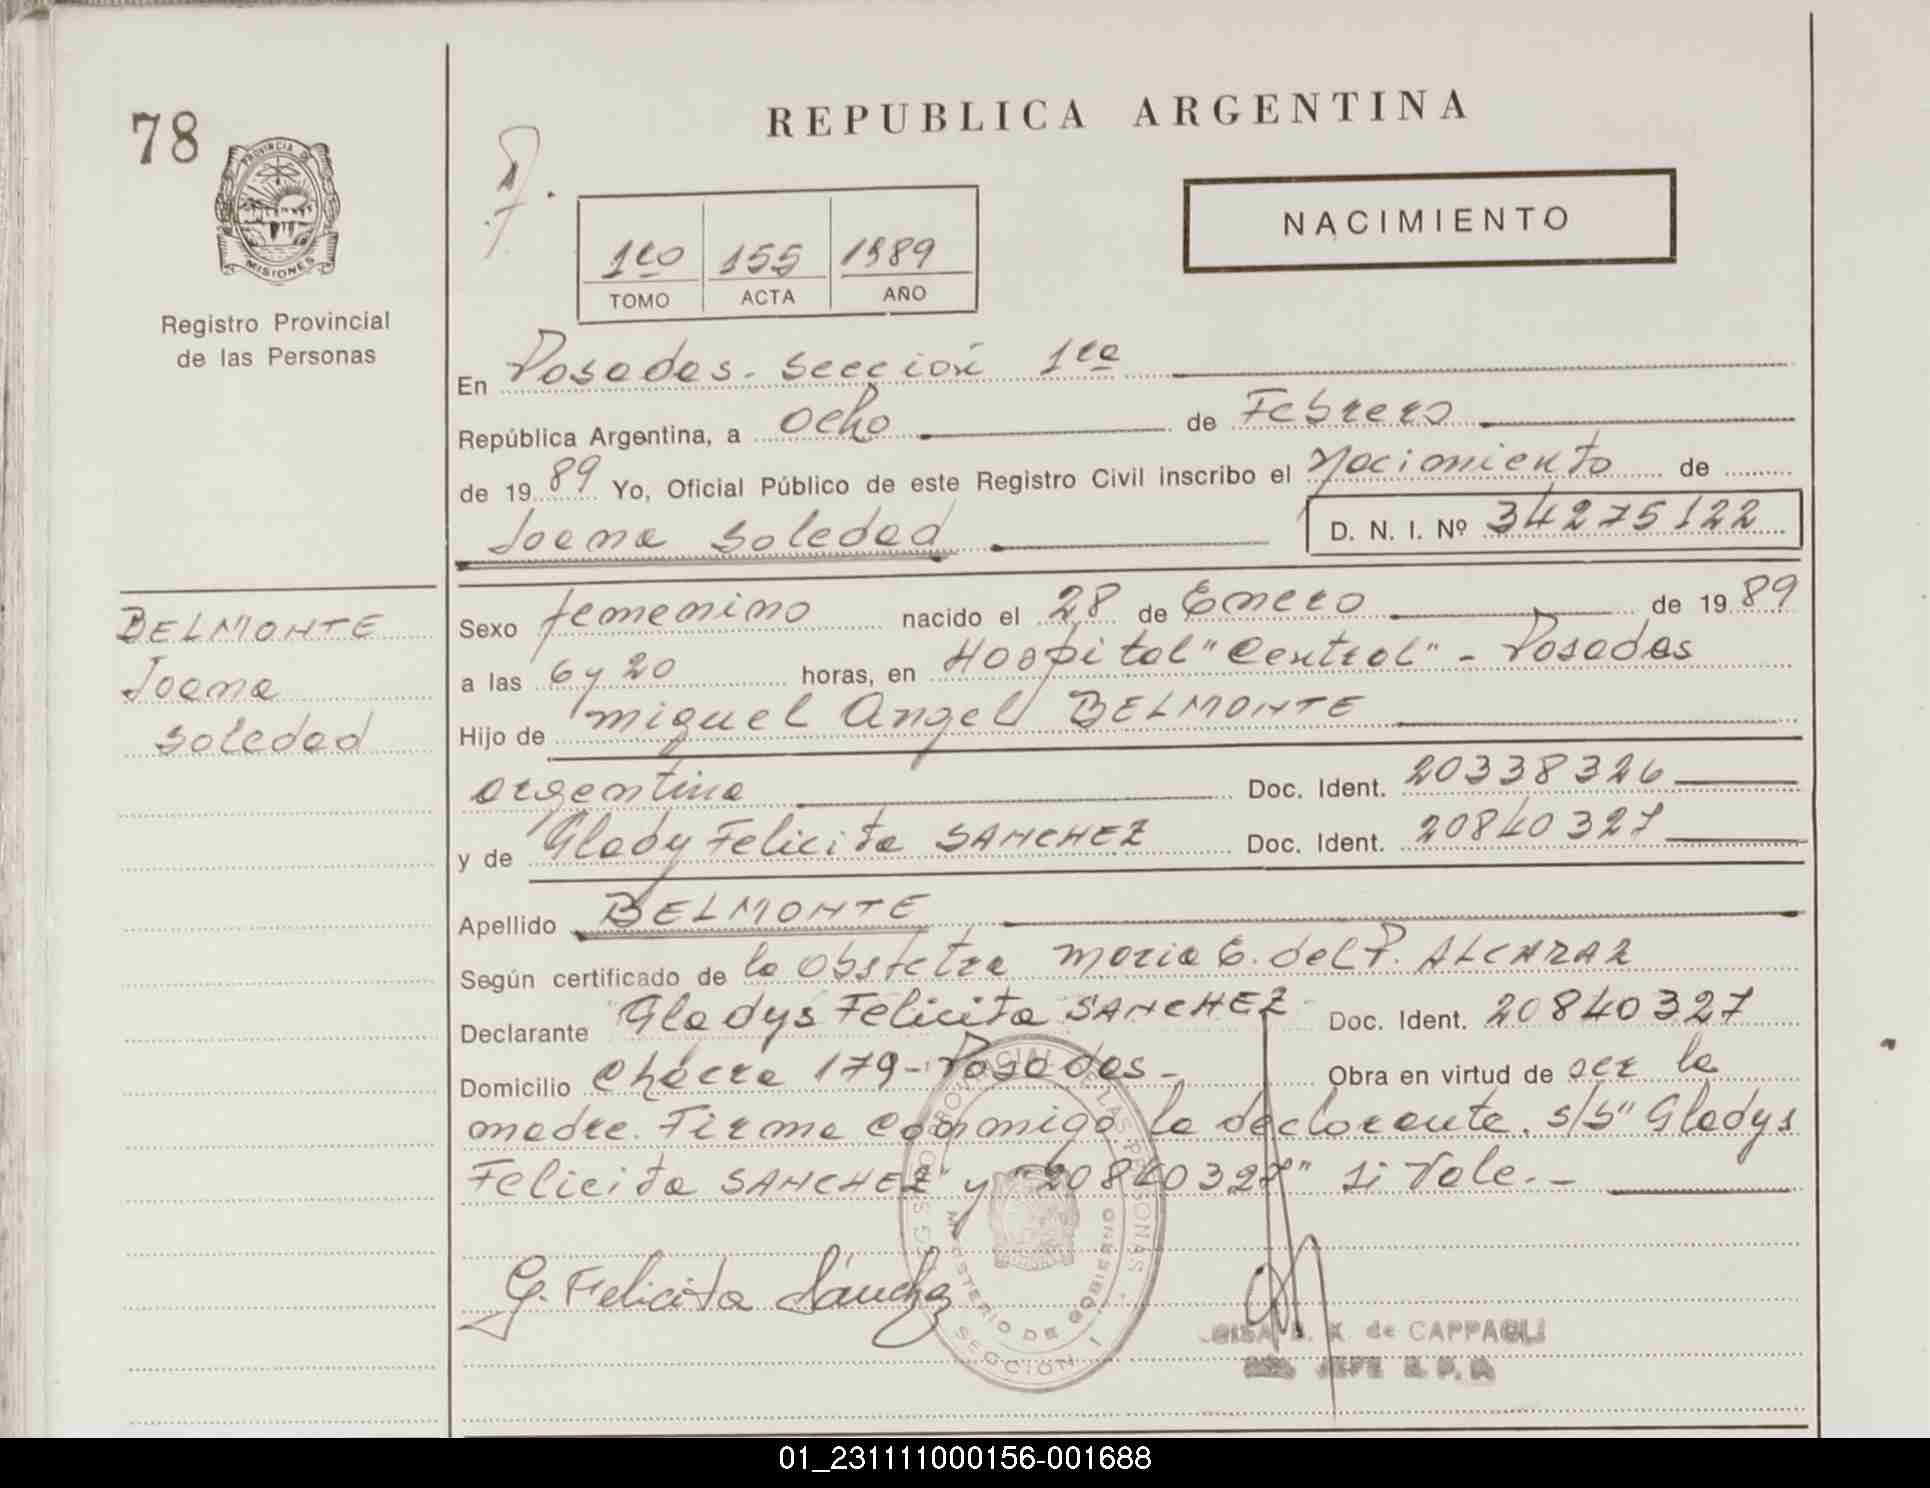 78
REPUBLICA ARGENTINA
PROVINCIA DE
MISIONES
Registro Provincial
de las Personas
NACIMIENTO
1ro 155 1989
TOMO ACTA AÑO
En Posadas - Sección 1ra
República Argentina, a Ocho de Febrero
de 19 89 Yo, Oficial Público de este Registro Civil inscribo el Nacimiento de
Joana Soledad D. N. I. Nº 34275122
BELMONTE
Joana
Soledad
Sexo femenino nacido el 28 de Enero de 19 89
a las 6 y 20 horas, en Hospital "Central" - Posadas
Hijo de Miguel Angel BELMONTE
argentina Doc. Ident. 20338326
y de Glady Felicita SANCHEZ Doc. Ident. 20840327
Apellido BELMONTE
Según certificado de la Obstetra Maria E. del P. ALCARAZ
Declarante Gladys Felicita SANCHEZ Doc. Ident. 20840327
Domicilio Chacra 179 - Posadas - Obra en virtud de ser la
madre. Firma conmigo la declarante. S/b "Gladys
Felicita SANCHEZ" y "20840327" Si Vale. -
G. Felicita Sánchez
MINISTERIO DE GOBIERNO
SECCIÓN 1
de CAPPAGLI
JEFE R. P.
01_231111000156-001688